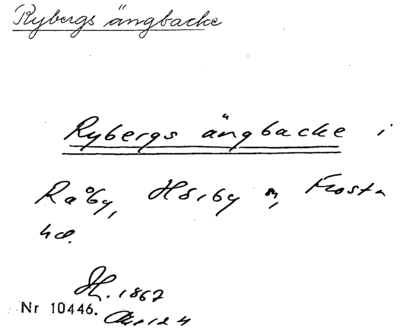 Rybergs ängbacke
Rybergs ängbacke i
Råby, Hörby sn, Frosta
hd.
H. 1867
Nr 10446.